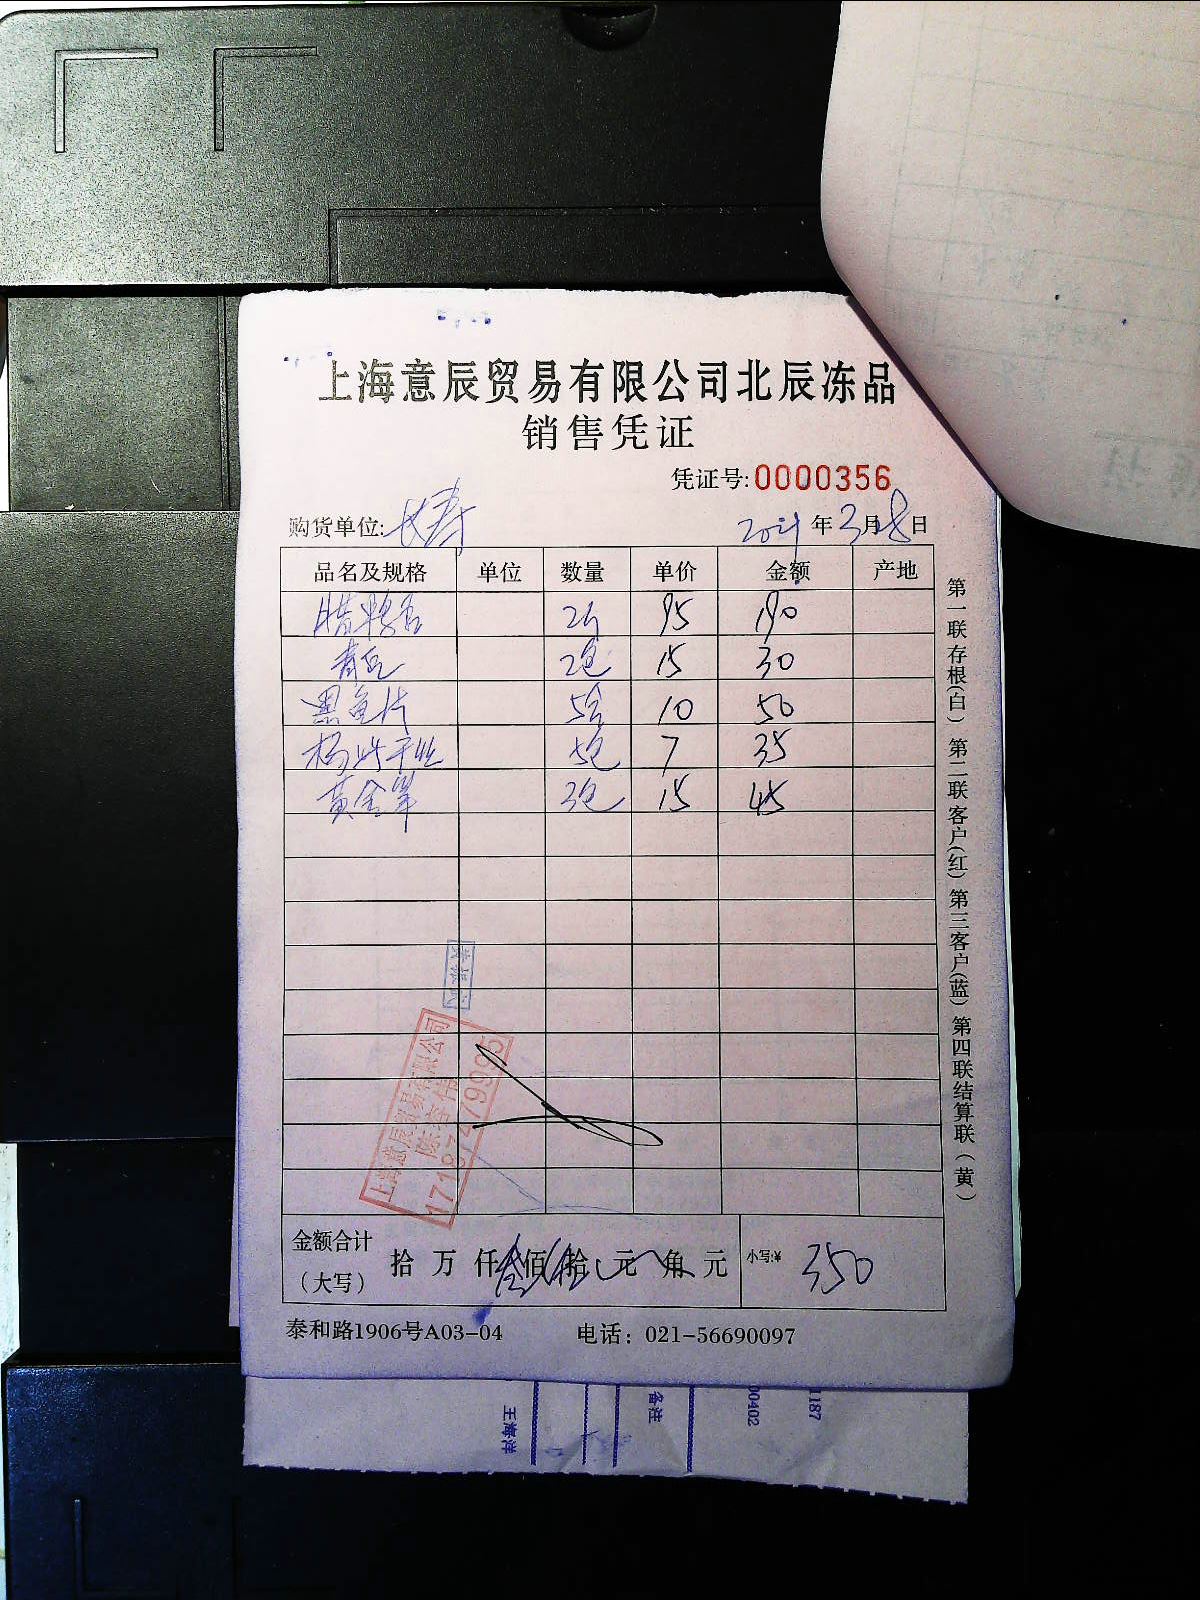 上海意辰贸易有限公司北辰冻品
销售凭证
凭证号:0000356
购货单位:长寿 2021年3月28日
品名及规格 单位 数量 单价 金额 产地
95 190
青豆 2包 15 30
黑鱼片 5盒 10 50
5包 7 35
黄金 3包 15 45
上海意辰贸易有限公司
17187479995
金额合计（大写） 拾 万 仟 叁 佰 伍 拾 元 角 元 小写:¥ 350
泰和路1906号A03-04 电话：021-56690097
第一联存根(白) 第二联客户(红) 第三客户(蓝) 第四联结算联(黄)
王海洋
备注
00402
1187